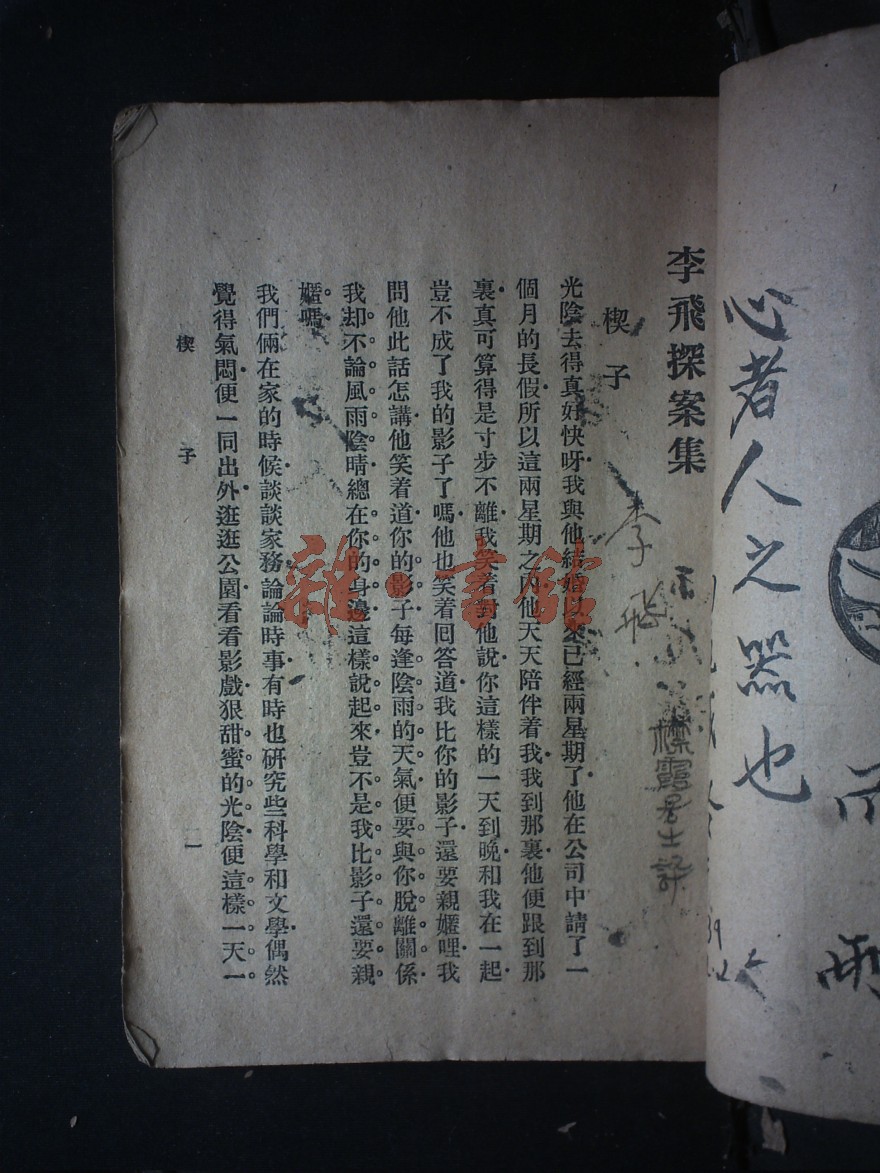 心者人之器也
李飛探案集
楔子
李飛
光陰去得真好快呀我與他結婚以來已經兩星期了他在公司中請了一
個月的長假所以這兩星期之內他天天陪伴着我我到那裏他便跟到那
裏真可算得是寸步不離我笑着對他說你這樣的一天到晚和我在一起
豈不成了我的影子了嗎他也笑着回答道我比你的影子還要親嬺哩我
問他此話怎講他笑着道你的影子每逢陰雨的天氣便要與你脫離關係
我却不論風雨陰晴總在你的身邊這樣說起來豈不是我比影子還要親
嬺嗎
我們倆在家的時候談談家務論論時事有時也研究些科學和文學偶然
覺得氣悶便一同出外逛逛公園看看影戲狠甜蜜的光陰便這樣一天一
楔子
一
雜·書館